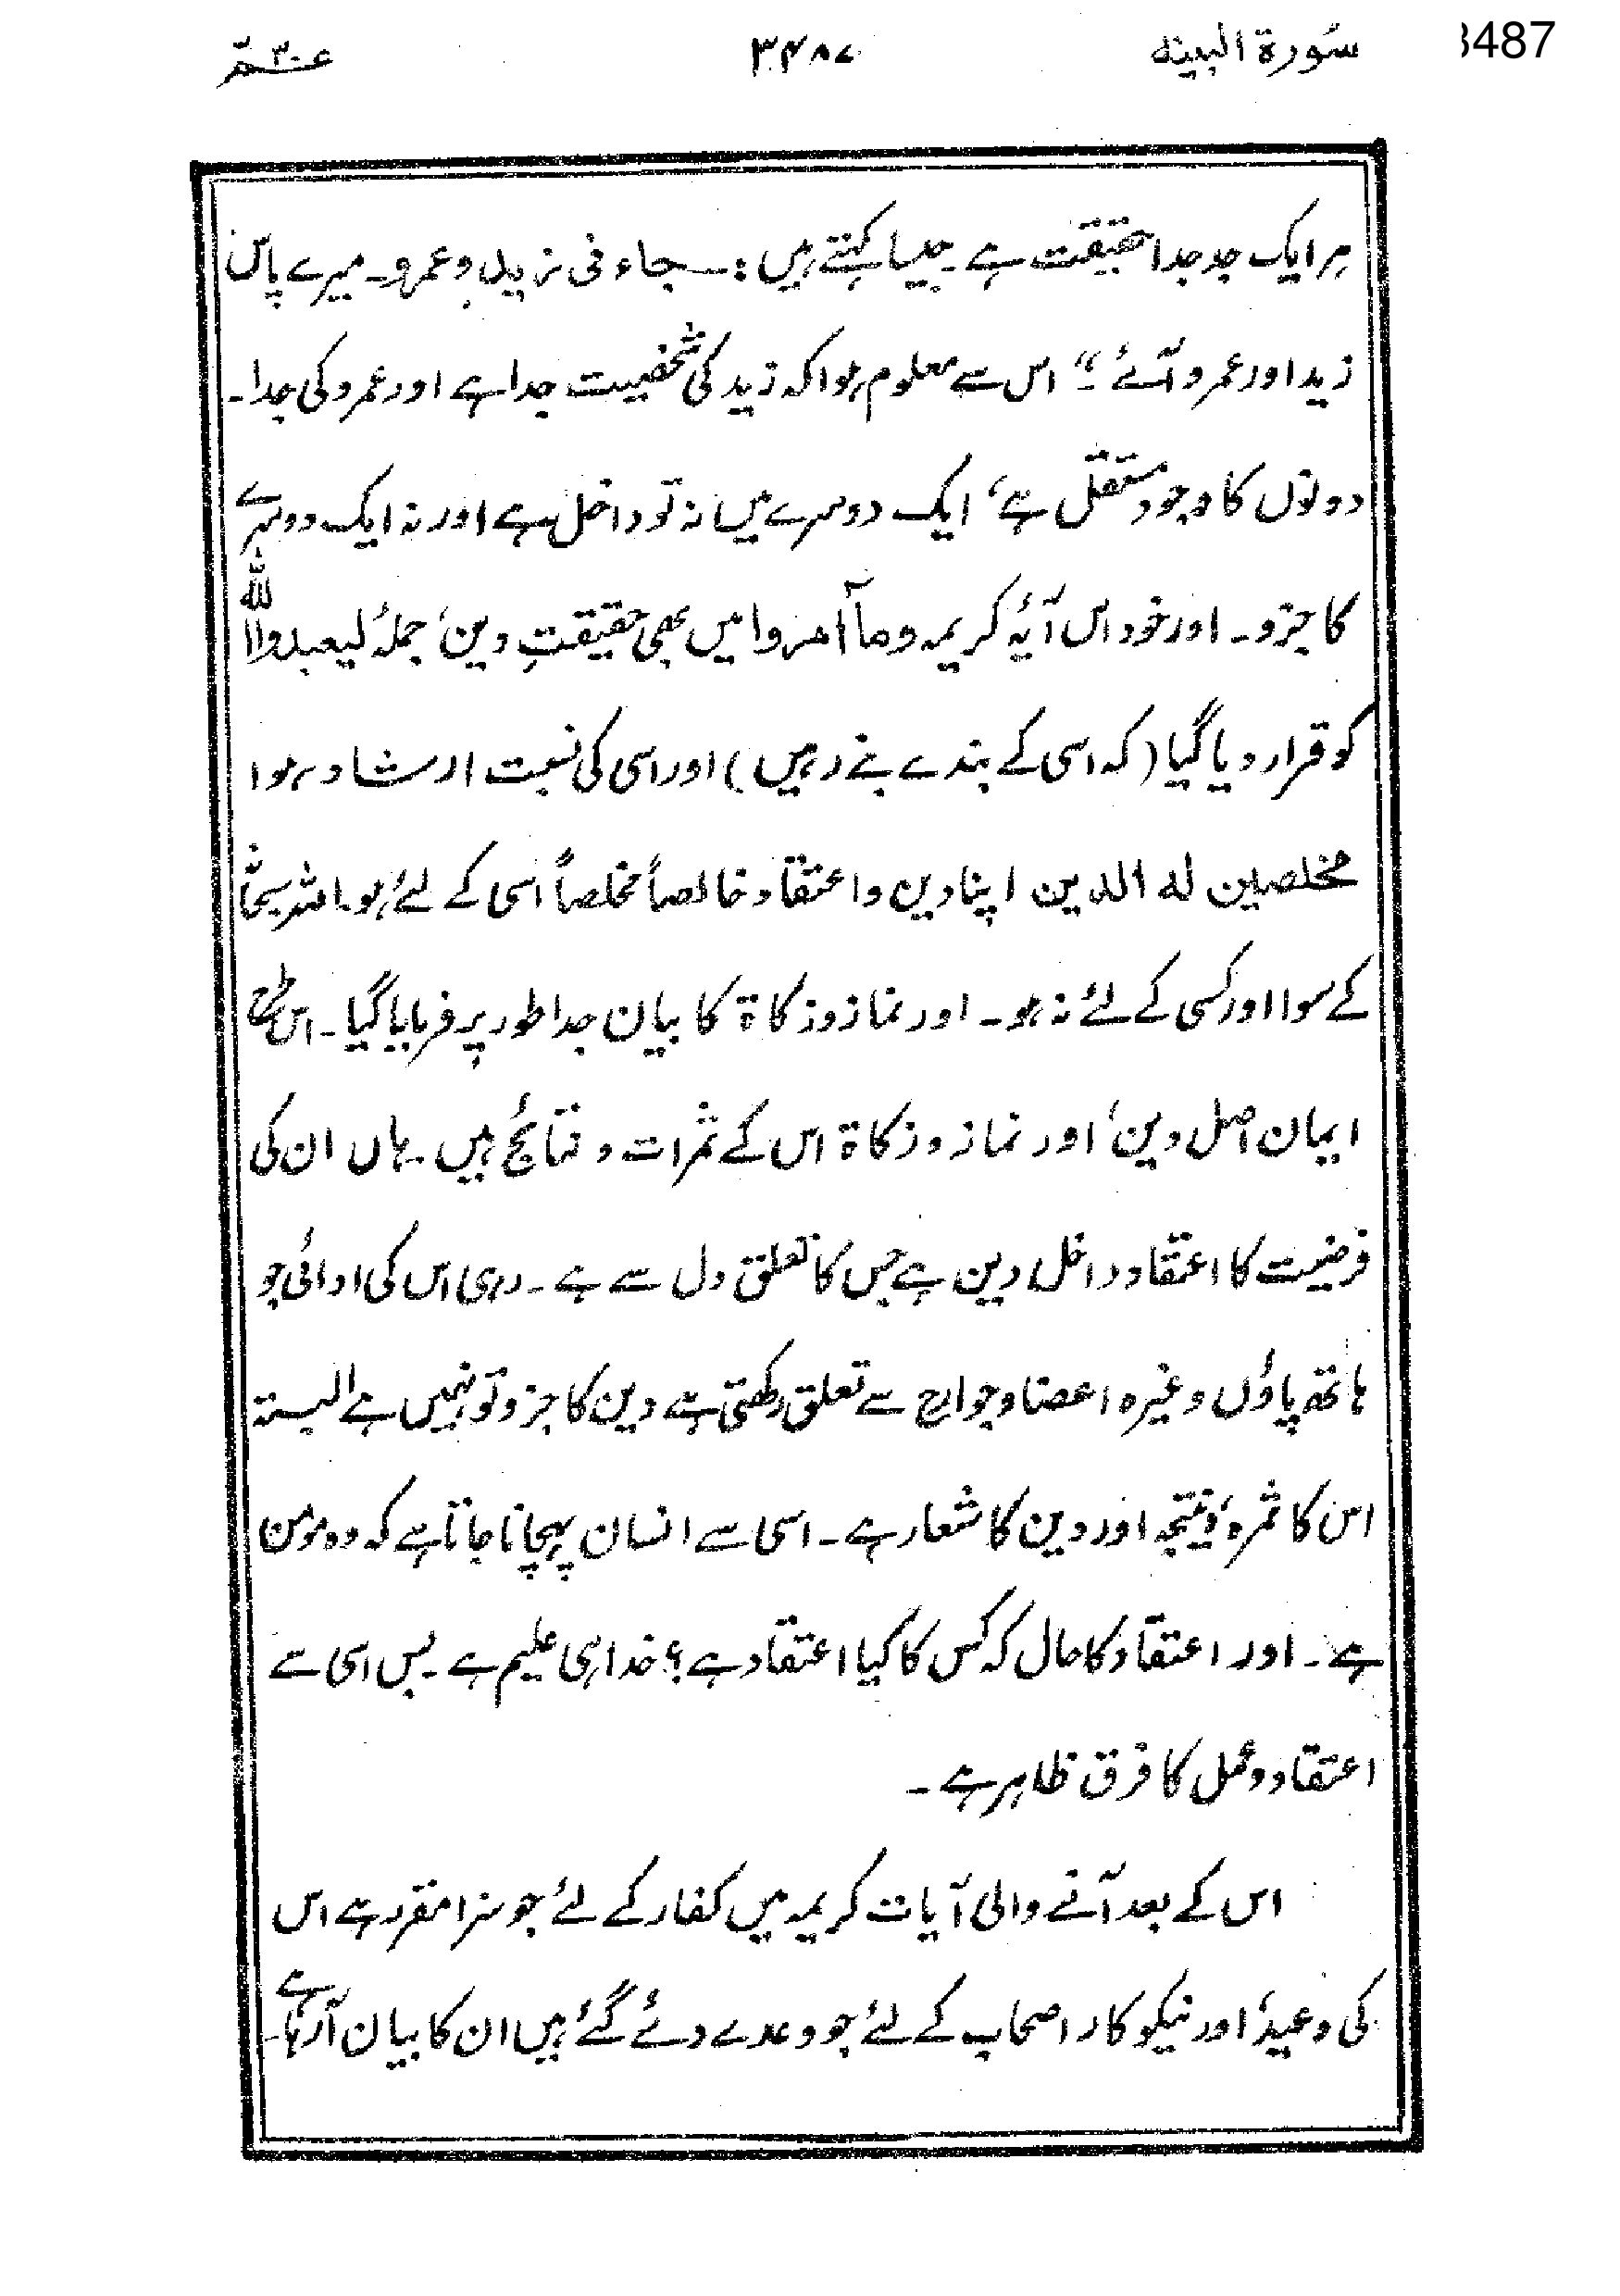 سُورة البینه ۳۴۸۷ عـمّ ۳۰ 3487
ہر ایک جد جدا حقیقت ہے۔ جیسا کہتے ہیں :۔ جاء نی زید و عمرو۔ میرے پاس
زید اور عمرو آئے ؛“ اس سے معلوم ہوا کہ زید کی شخصیت جدا ہے اور عمرو کی جدا۔
دونوں کا وجود مستقل ہے، ایک دوسرے میں نہ تو داخل ہے اور نہ ایک دوسرے
کا جزو۔ اور خود اس آیۂ کریمہ وما آمروا میں بھی حقیقتِ دین، جملۂ لیعبدوا اللّٰہ
کو قرار دیا گیا (کہ اسی کے بندے بنے رہیں) اور اسی کی نسبت ارشاد ہوا
مخلصین له الدین اپنا دین و اعتقاد خالصاً مخلصاً اسی کے لئے ہو۔ اللہ سبحانہٗ
کے سوا اور کسی کے لئے نہ ہو۔ اور نماز و زکاة کا بیان جدا طور پر فرمایا گیا۔ اس طرح
ایمان اصل دین، اور نماز و زکاة اس کے ثمرات و نتائج ہیں۔ ہاں ان کی
فرضیت کا اعتقاد داخل دین ہے جس کا تعلق دل سے ہے۔ رہی اس کی ادائی جو
ہاتھ پاؤں وغیرہ اعضا و جوارح سے تعلق رکھتی ہے دین کا جزو تو نہیں ہے البتہ
اس کا ثمرہ و نتیجہ اور دین کا شعار ہے۔ اسی سے انسان پہچانا جاتا ہے کہ وہ مؤمن
ہے۔ اور اعتقاد کا حال کہ کس کا کیا اعتقاد ہے ؟ خدا ہی علیم ہے۔ بس اسی سے
اعتقاد و عمل کا فرق ظاہر ہے۔
اس کے بعد آنے والی آیات کریمہ میں کفار کے لئے جو سزا مقرر ہے اس
کی وعید، اور نیکوکار اصحاب کے لئے جو وعدے دئے گئے ہیں ان کا بیان آرہا ہے۔